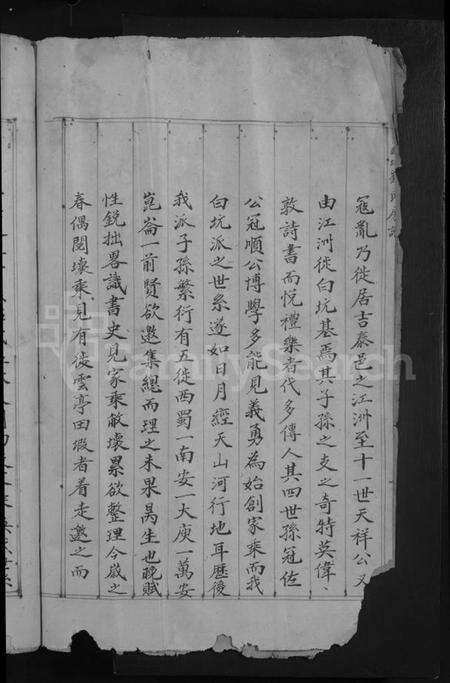 寇亂乃徙居吉泰邑之江洲至十一世天祥公又
由江洲徙白坑基焉其子孫之支之奇特英偉、
敦詩書而悅禮樂者代多傳人其四世孫冠佐
公冠順公博學多能見義勇為始創家乘而我
白坑派之世系遂如日月經天山河行地耳歷後
我派子孫繁衍有五徙西蜀一南安一大庾一萬安
崑崙一前賢欲邀集總而理之未果昺生也晚賦
性鈍拙畧識書史見家乘敝壞累欲整理今歲之
春偶閱壞乘見有徙雲亭田塅者着走邀之而
FamilySearch